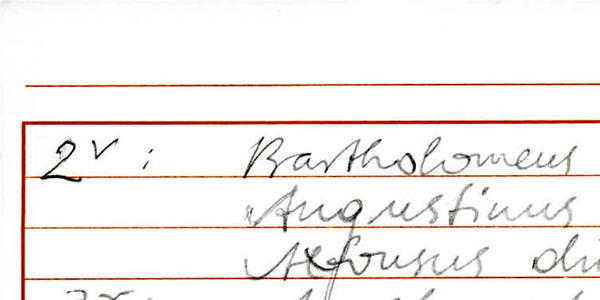 2v : Bartholomeus
Augustinus
Alfonsus